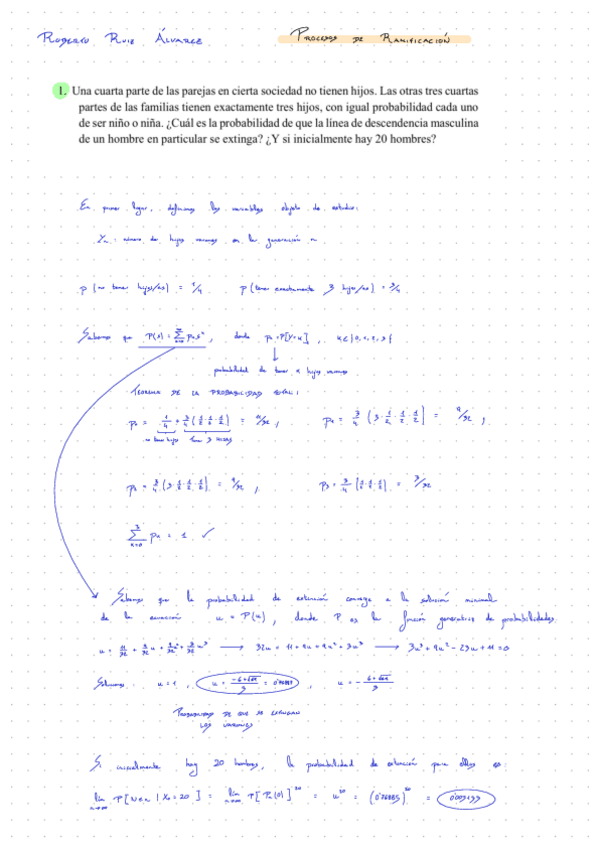 Rogelio Ruiz Álvarez
Procesos de Ramificación
1. Una cuarta parte de las parejas en cierta sociedad no tienen hijos. Las otras tres cuartas
partes de las familias tienen exactamente tres hijos, con igual probabilidad cada uno
de ser niño o niña. ¿Cuál es la probabilidad de que la línea de descendencia masculina
de un hombre en particular se extinga? ¿Y si inicialmente hay 20 hombres?
En primer lugar, definimos las variables objeto de estudio:
Yn: número de hijos varones en la generación n
p (no tener hijos/as) = 1/4 p (tener exactamente 3 hijos/as) = 3/4
Sabemos que P(s) = ∑ pₖ sᵏ, donde pₖ = P[Y=k], k∈{0,1,2,3}
probabilidad de tener k hijos varones
Teorema de la probabilidad total:
p₀ = 1/4 + 3/4 (1/2·1/2·1/2) = 11/32, p₁ = 3/4 (3·1/2·1/2·1/2) = 9/32,
no tener hijos tener 3 hijas
p₂ = 3/4 (3·1/2·1/2·1/2) = 9/32, p₃ = 3/4 (1/2·1/2·1/2) = 3/32
∑ pₖ = 1 ✓
Sabemos que la probabilidad de extinción converge a la solución minimal
de la ecuación u = P(u), donde P es la función generatriz de probabilidades.
u = 11/32 + 9/32 u + 9/32 u² + 3/32 u³ → 32u = 11 + 9u + 9u² + 3u³ → 3u³ + 9u² - 23u + 11 = 0
Soluciones: u = 1, u =
Probabilidad de que se extingan
los varones
Si inicialmente hay 20 hombres, la probabilidad de extinción para ellos es: